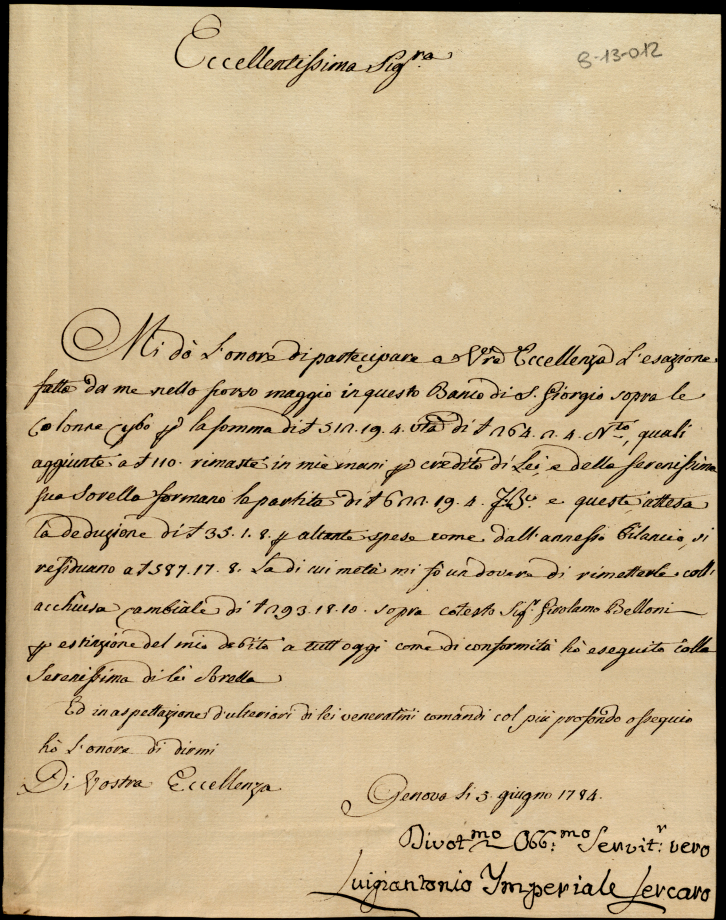 Eccellentissima Sig.ra
8-13-012
Mi dò l'onore di partecipare a Vrã Eccellenza l'esazione
fatta da me nello scorso maggio in questo Banco di S. Giorgio sopra le
Colonne Cybo p la somma di £ 512.19.4. di £ 264.2.4. N.to, quali
aggiunte a £ 110. rimaste in mie mani p credito di Lei, e della Serenissima
sua Sorella formano la partita di £ 622.19.4. e queste attesa
la deduzione di £ 35.1.8. p altante spese come dall'annesso bilancio, si
residuano a £ 587.17.8. La di cui metà mi fò un dovere di rimetterle coll'
acchiusa cambiale di £ 293.18.10. sopra cotesto Sig.r Girolamo Belloni
p estinzione del mio debito a tutt'oggi come di conformità hò eseguito colla
Serenissima di lei Sorella
Ed in aspettazione d'ulteriori di lei veneratiñi comandi col più profondo ossequio
hò l'onore di dirmi
Di Vostra Eccellenza
Genova li 5. giugno 1784.
Divot.mo Obb.mo Servit.r vero
Luigiantonio Imperiale Lercaro